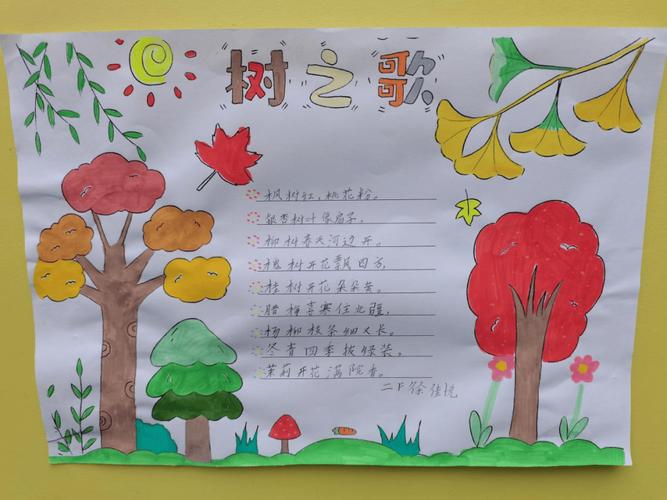 树之歌
枫树红，桃花粉。
银杏树叶像扇子，
柳树春天河边开。
槐树开花飘四方，
桂树开花朵朵香。
腊梅喜寒住北疆，
杨柳枝条细又长。
冬青四季披绿装。
茉莉开花满院香。
二 徐佳悦